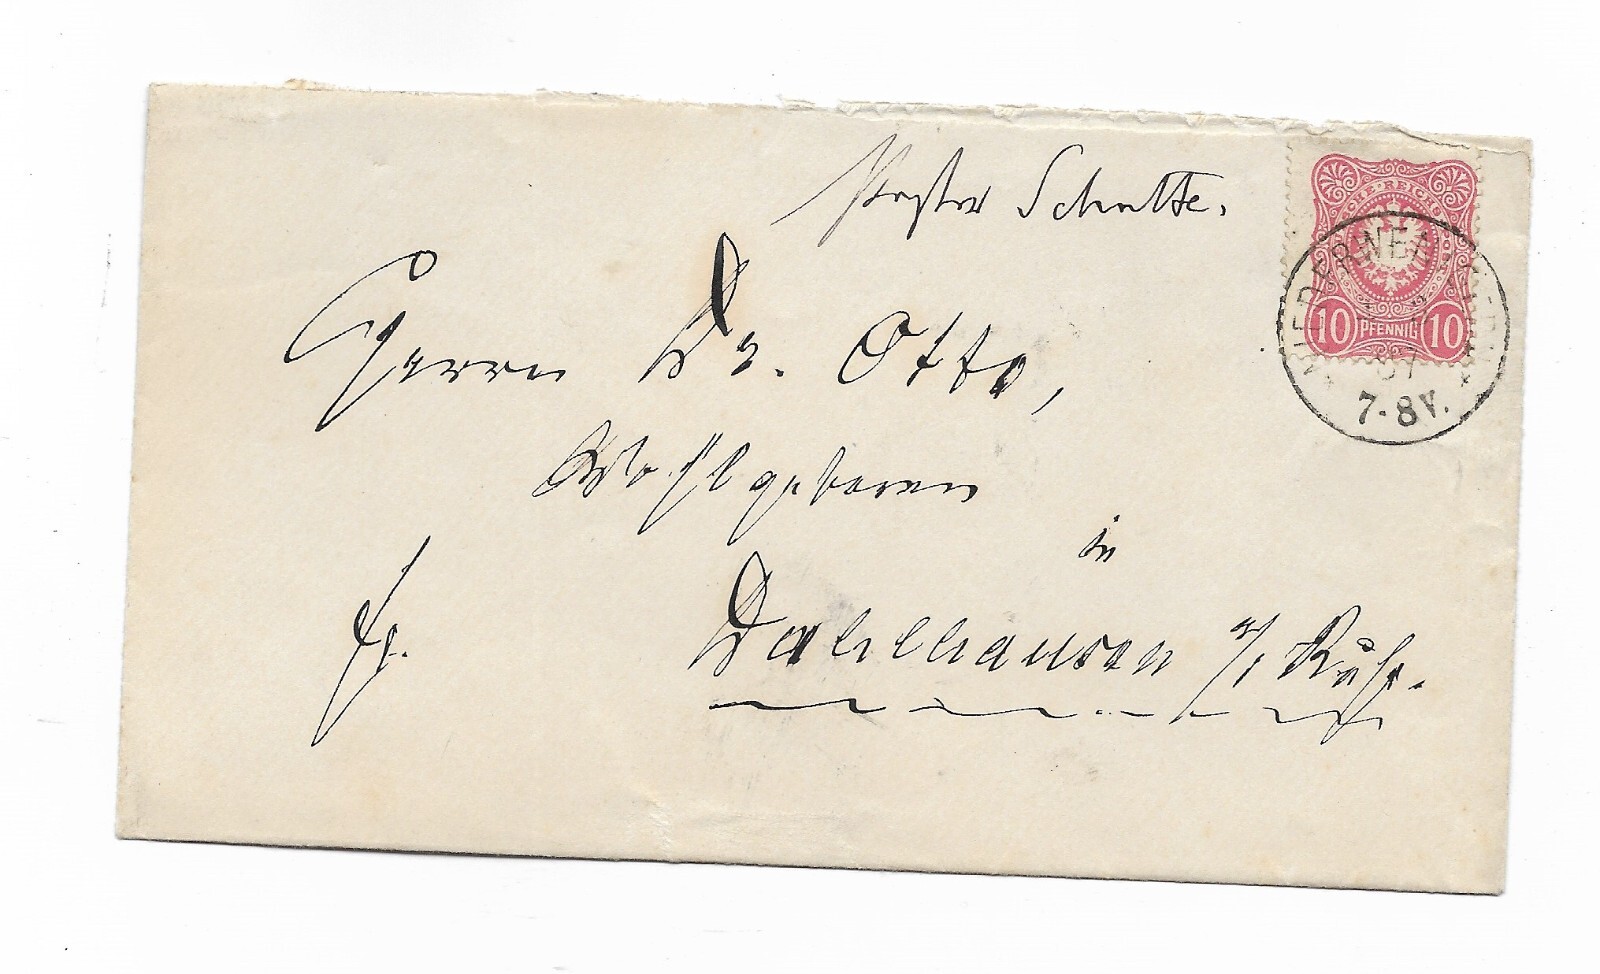 Pastor Schulte.
DEUTSCHE REICHS
10 PFENNIG 10
NIEDERWENIGERN
87
7-8V.
Herrn Dr. Otto,
Wohlgeboren
in
fr. Dahlhausen a/ Ruhr.